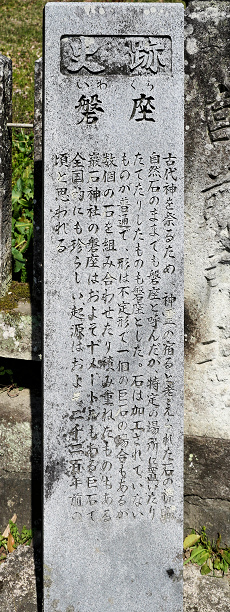 史跡
いわくら
磐座
古代神を祭るため 神々の宿ると考えられた石の
自然石のままでも磐座と呼んだが特定の場所に置いたり
たてたりしたものも磐座とした。石は加工されていない
ものが普通で 形は不定形で一個の巨石の場合もあるが
数個の石を組み合わせたり積み重ねたものもある
岩石神社の磐座はおよそ十メートルにもわたる巨石で
全国的にも珍らしい起源はおよそ二千二百年前の
頃と思われる